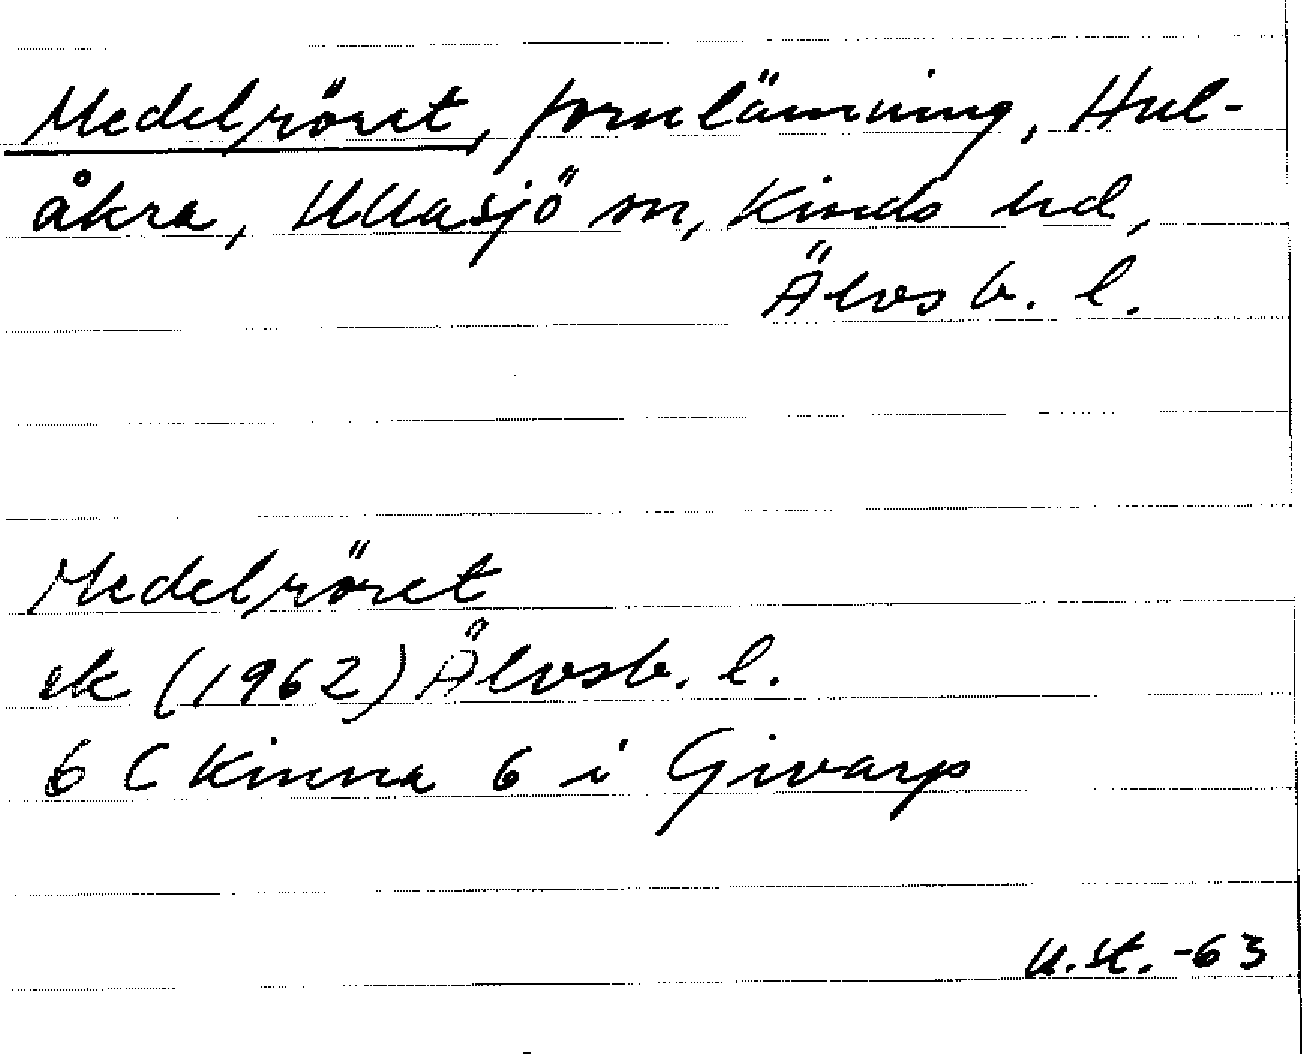 Medelröret, fornlämning, Hul-
åkra, Ullasjö sn, Kinds hd,
Älvsb. l.
Medelröret
ek (1962) Älvsb. l.
6 C Kinna 6 i Givarp
U.St. -63